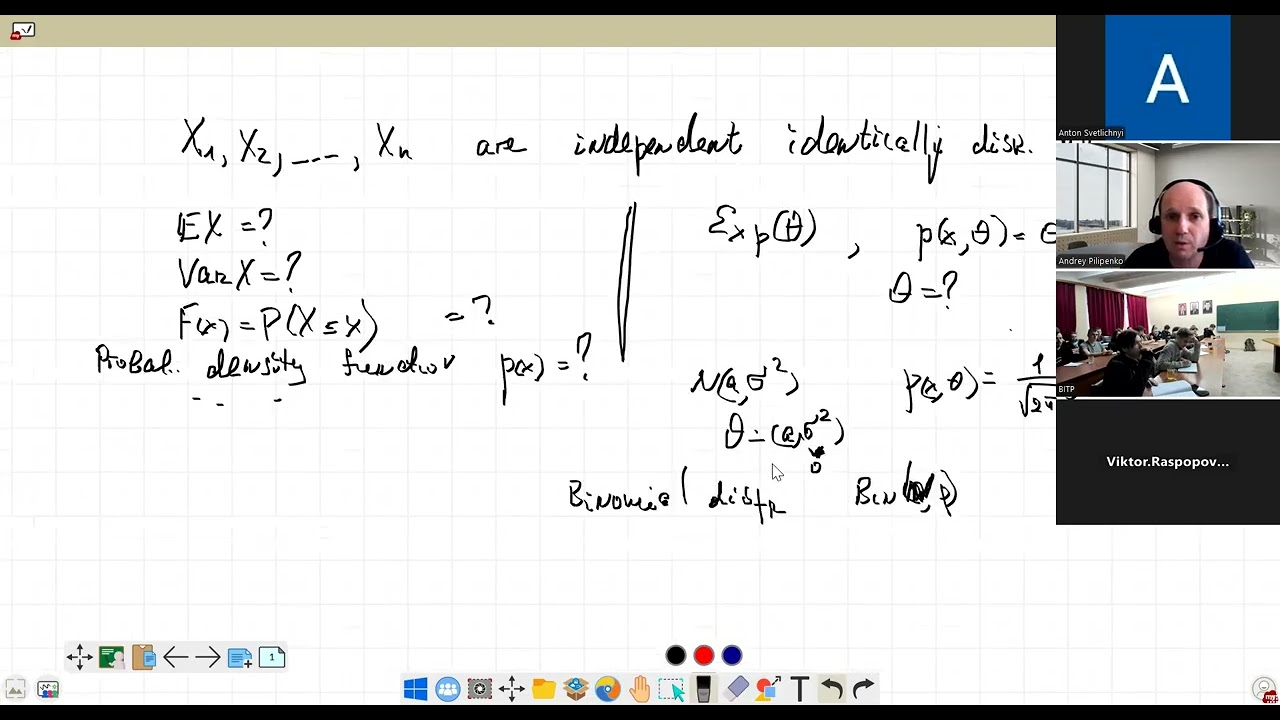 X₁, X₂, ..., Xₙ are independent identically distr.
EX = ?
Var X = ?
F(x) = P(X ≤ x) = ?
Probab. density function p(x) = ?
Exp(θ), p(x, θ) =
θ = ?
N(a, σ²) p(x, θ) = 1
√2π
θ = (a, σ²)
Binomial distr
p)
A
Anton Svetlichnyi
Andrey Pilipenko
BITP
Viktor.Raspopov...
1
T